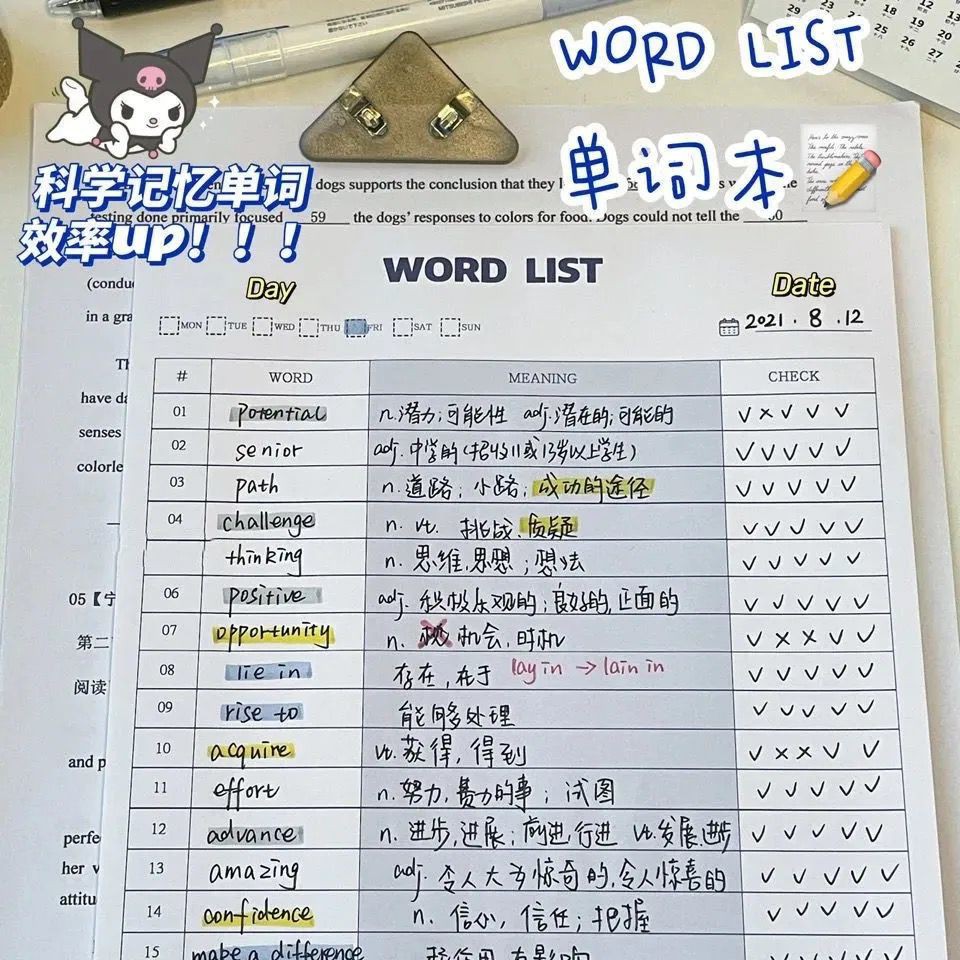 WORD LIST
单词本
科学记忆单词
效率up！！！
dogs supports the conclusion that they
testing done primarily focused 59 the dogs' responses to colors for food. Dogs could not tell the 60
WORD LIST
Day
Date
MON TUE WED THU FRI SAT SUN
2021.8.12
(condu
in a gra
Th
have da
senses
colorle
05【宁
第二
阅读
and p
perfe
her v
attitu
# WORD MEANING CHECK
01 potential n.潜力;可能性 adj.潜在的;可能的 ✓×✓✓✓
02 senior adj.中学的(招收11或13岁以上学生) ✓✓✓✓✓
03 path n.道路；小路；成功的途径 ✓✓✓✓✓
04 challenge n. vt. 挑战、质疑 ✓✓✓✓✓
thinking n. 思维,思想；想法 ✓✓✓✓✓
06 positive adj. 积极乐观的；良好的,正面的 ✓✓✓✓✓
07 opportunity n. 机会,时机 ✓××✓✓
08 lie in 存在,在于 lay in → lain in ✓✓✓✓✓
09 rise to 能够处理 ✓✓✓✓✓
10 acquire vt.获得,得到 ✓××✓✓
11 effort n.努力,费力的事；试图 ✓✓✓✓✓
12 advance n.进步,进展；前进,行进 vt.发展,进步 ✓✓✓✓✓
13 amazing adj.令人大为惊奇的,令人惊喜的 ✓✓✓✓✓
14 confidence n. 信心,信任；把握 ✓✓✓✓✓
15 make a difference 有影响